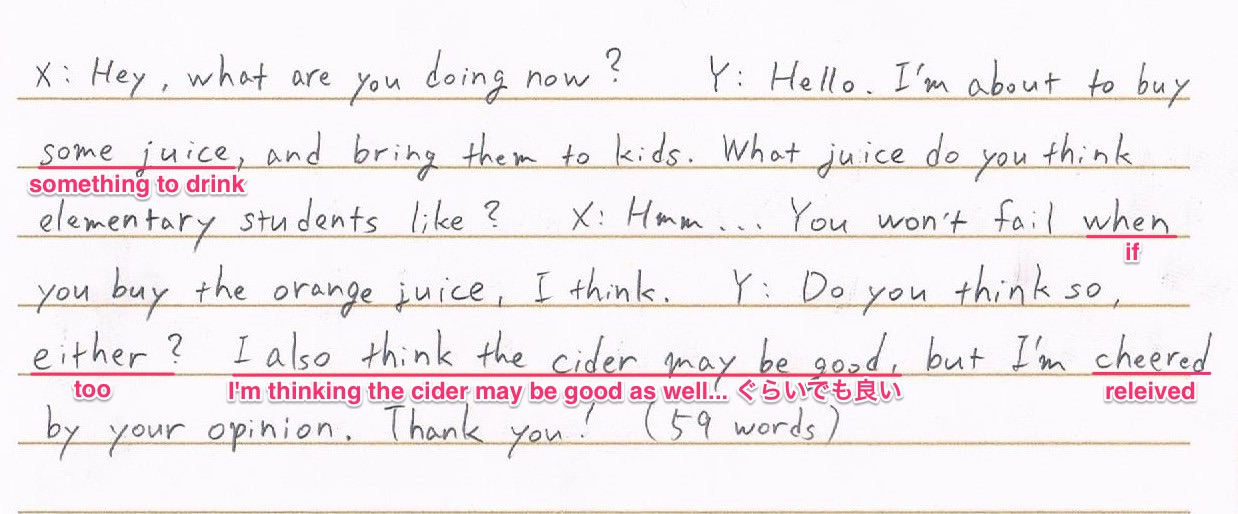 X: Hey, what are you doing now? Y: Hello. I'm about to buy
some juice, and bring them to kids. What juice do you think
something to drink
elementary students like? X: Hmm... You won't fail when
if
you buy the orange juice, I think. Y: Do you think so,
either? I also think the cider may be good, but I'm cheered
too I'm thinking the cider may be good as well... ぐらいでも良い releived
by your opinion. Thank you! (59 words)